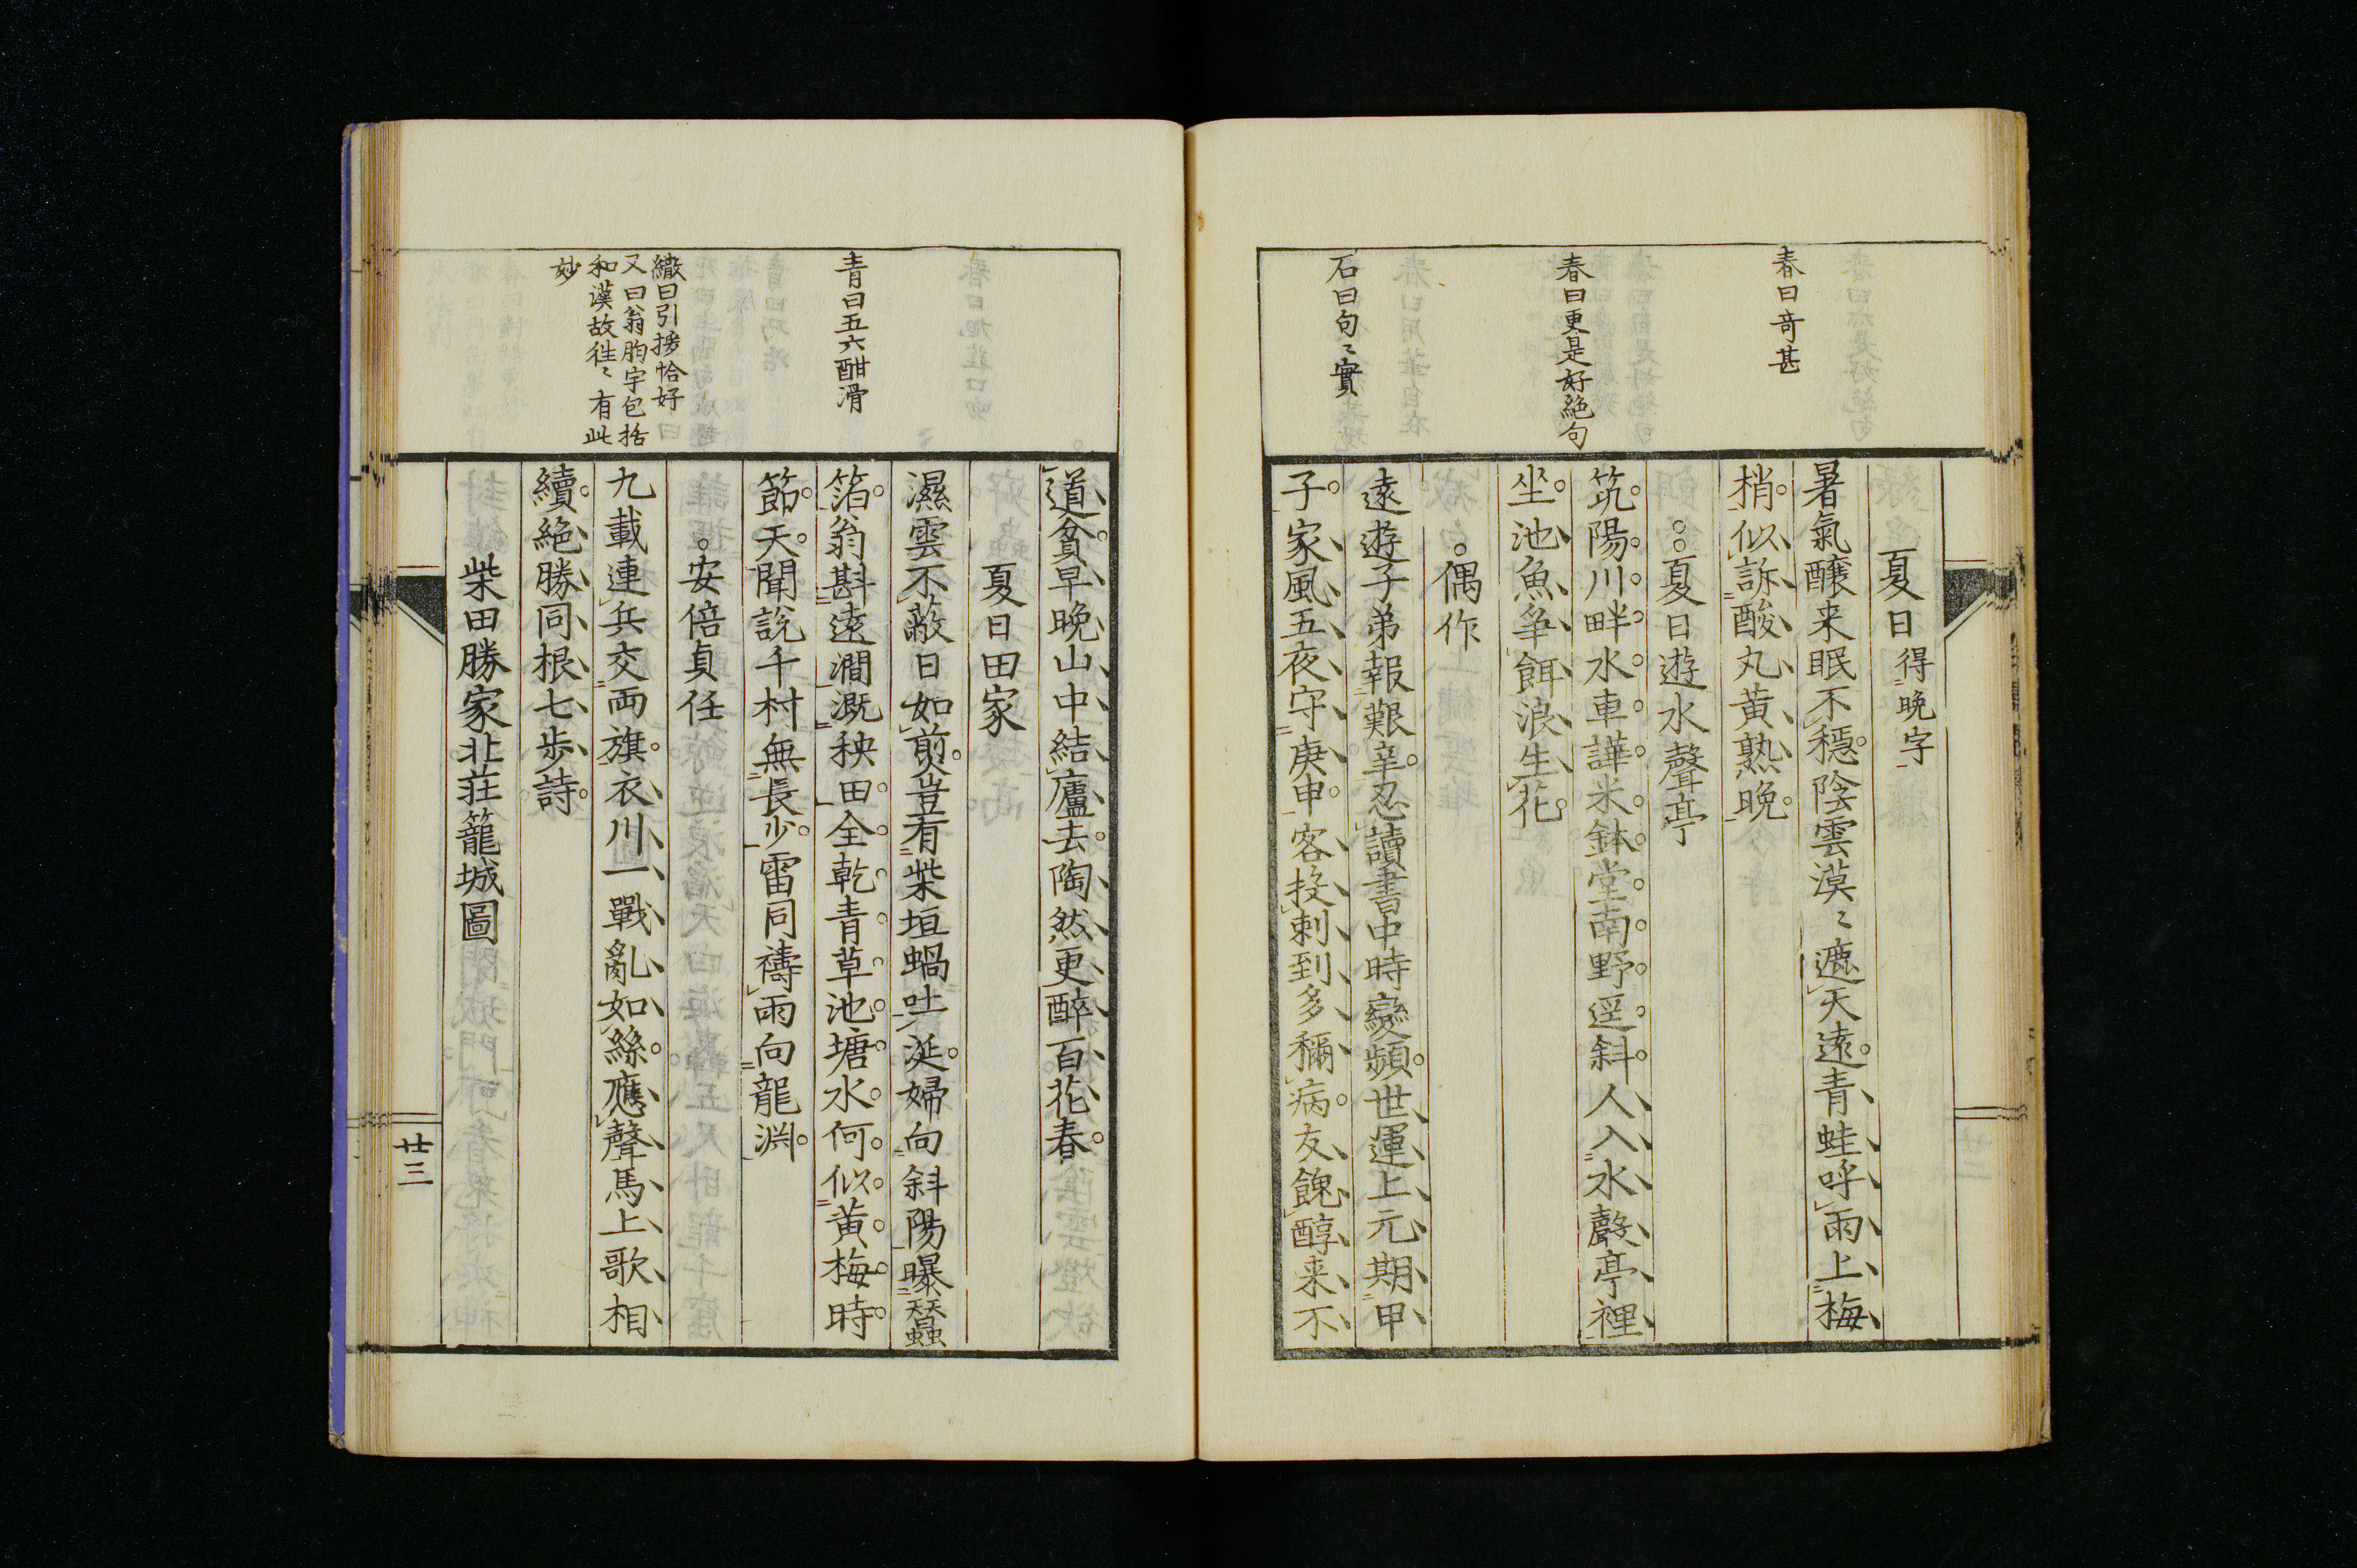 春曰奇甚
春曰更是好絶句
石曰句〻實
夏日得晩字
暑氣釀来眠不穏陰雲漠〻遮天遠青蛙呼雨上梅
梢似訴酸丸黄熟晩
夏日遊水聲亭
筑陽川畔水車譁米鉢堂南野逕斜人入水聲亭裡
坐池魚爭餌浪生花
偶作
遠遊子弟報艱辛忍讀書中時變頻世運上元期甲
子家風五夜守庚申客投刺到多稱病友餽醇来不
青曰五六酣滑
繖曰引援恰好
又曰翁胸宇包括
和漢故徃〻有此
妙
道貧早晩山中結廬去陶然更醉百花春
夏日田家
濕雲不蔽日如煎豈有柴垣蝸吐涎婦向斜陽曝蠶
箔翁斟遠澗漑秧田全乾青草池塘水何似黄梅時
節天聞説千村無長少雷同禱雨向龍淵
安倍貞任
九載連兵交両旗衣川一戰亂如絲應聲馬上歌相
續絶勝同根七歩詩
柴田勝家北莊籠城圖
廿三